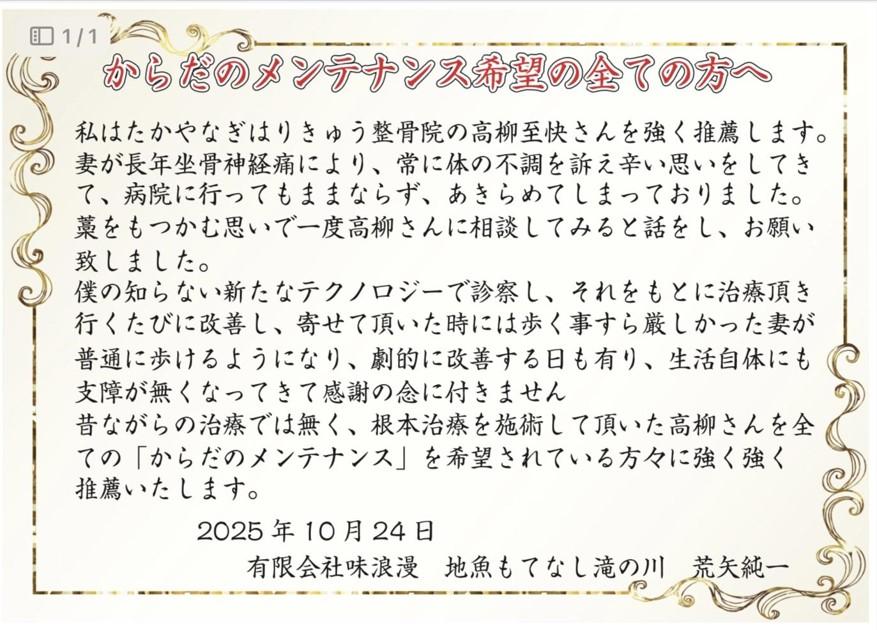 1/1
からだのメンテナンス希望の全ての方へ
私はたかやなぎはりきゅう整骨院の高柳至快さんを強く推薦します。
妻が長年坐骨神経痛により、常に体の不調を訴え辛い思いをしてき
て、病院に行ってもままならず、あきらめてしまっておりました。
藁をもつかむ思いで一度高柳さんに相談してみると話をし、お願い
致しました。
僕の知らない新たなテクノロジーで診察し、それをもとに治療頂き
行くたびに改善し、寄せて頂いた時には歩く事すら厳しかった妻が
普通に歩けるようになり、劇的に改善する日も有り、生活自体にも
支障が無くなってきて感謝の念に付きません
昔ながらの治療では無く、根本治療を施術して頂いた高柳さんを全
ての「からだのメンテナンス」を希望されている方々に強く強く
推薦いたします。
2025年10月24日
有限会社味浪漫　地魚もてなし滝の川　荒矢純一